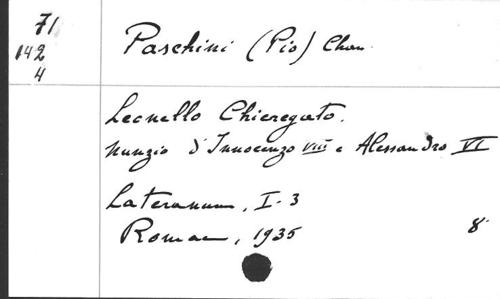 71
142
4
Paschini (Pio) Chan.
Leonello Chieregato.
Nunzio d'Innocenzo VIII e Alessandro VI
Lateranum, I-3
Romae, 1935
8°